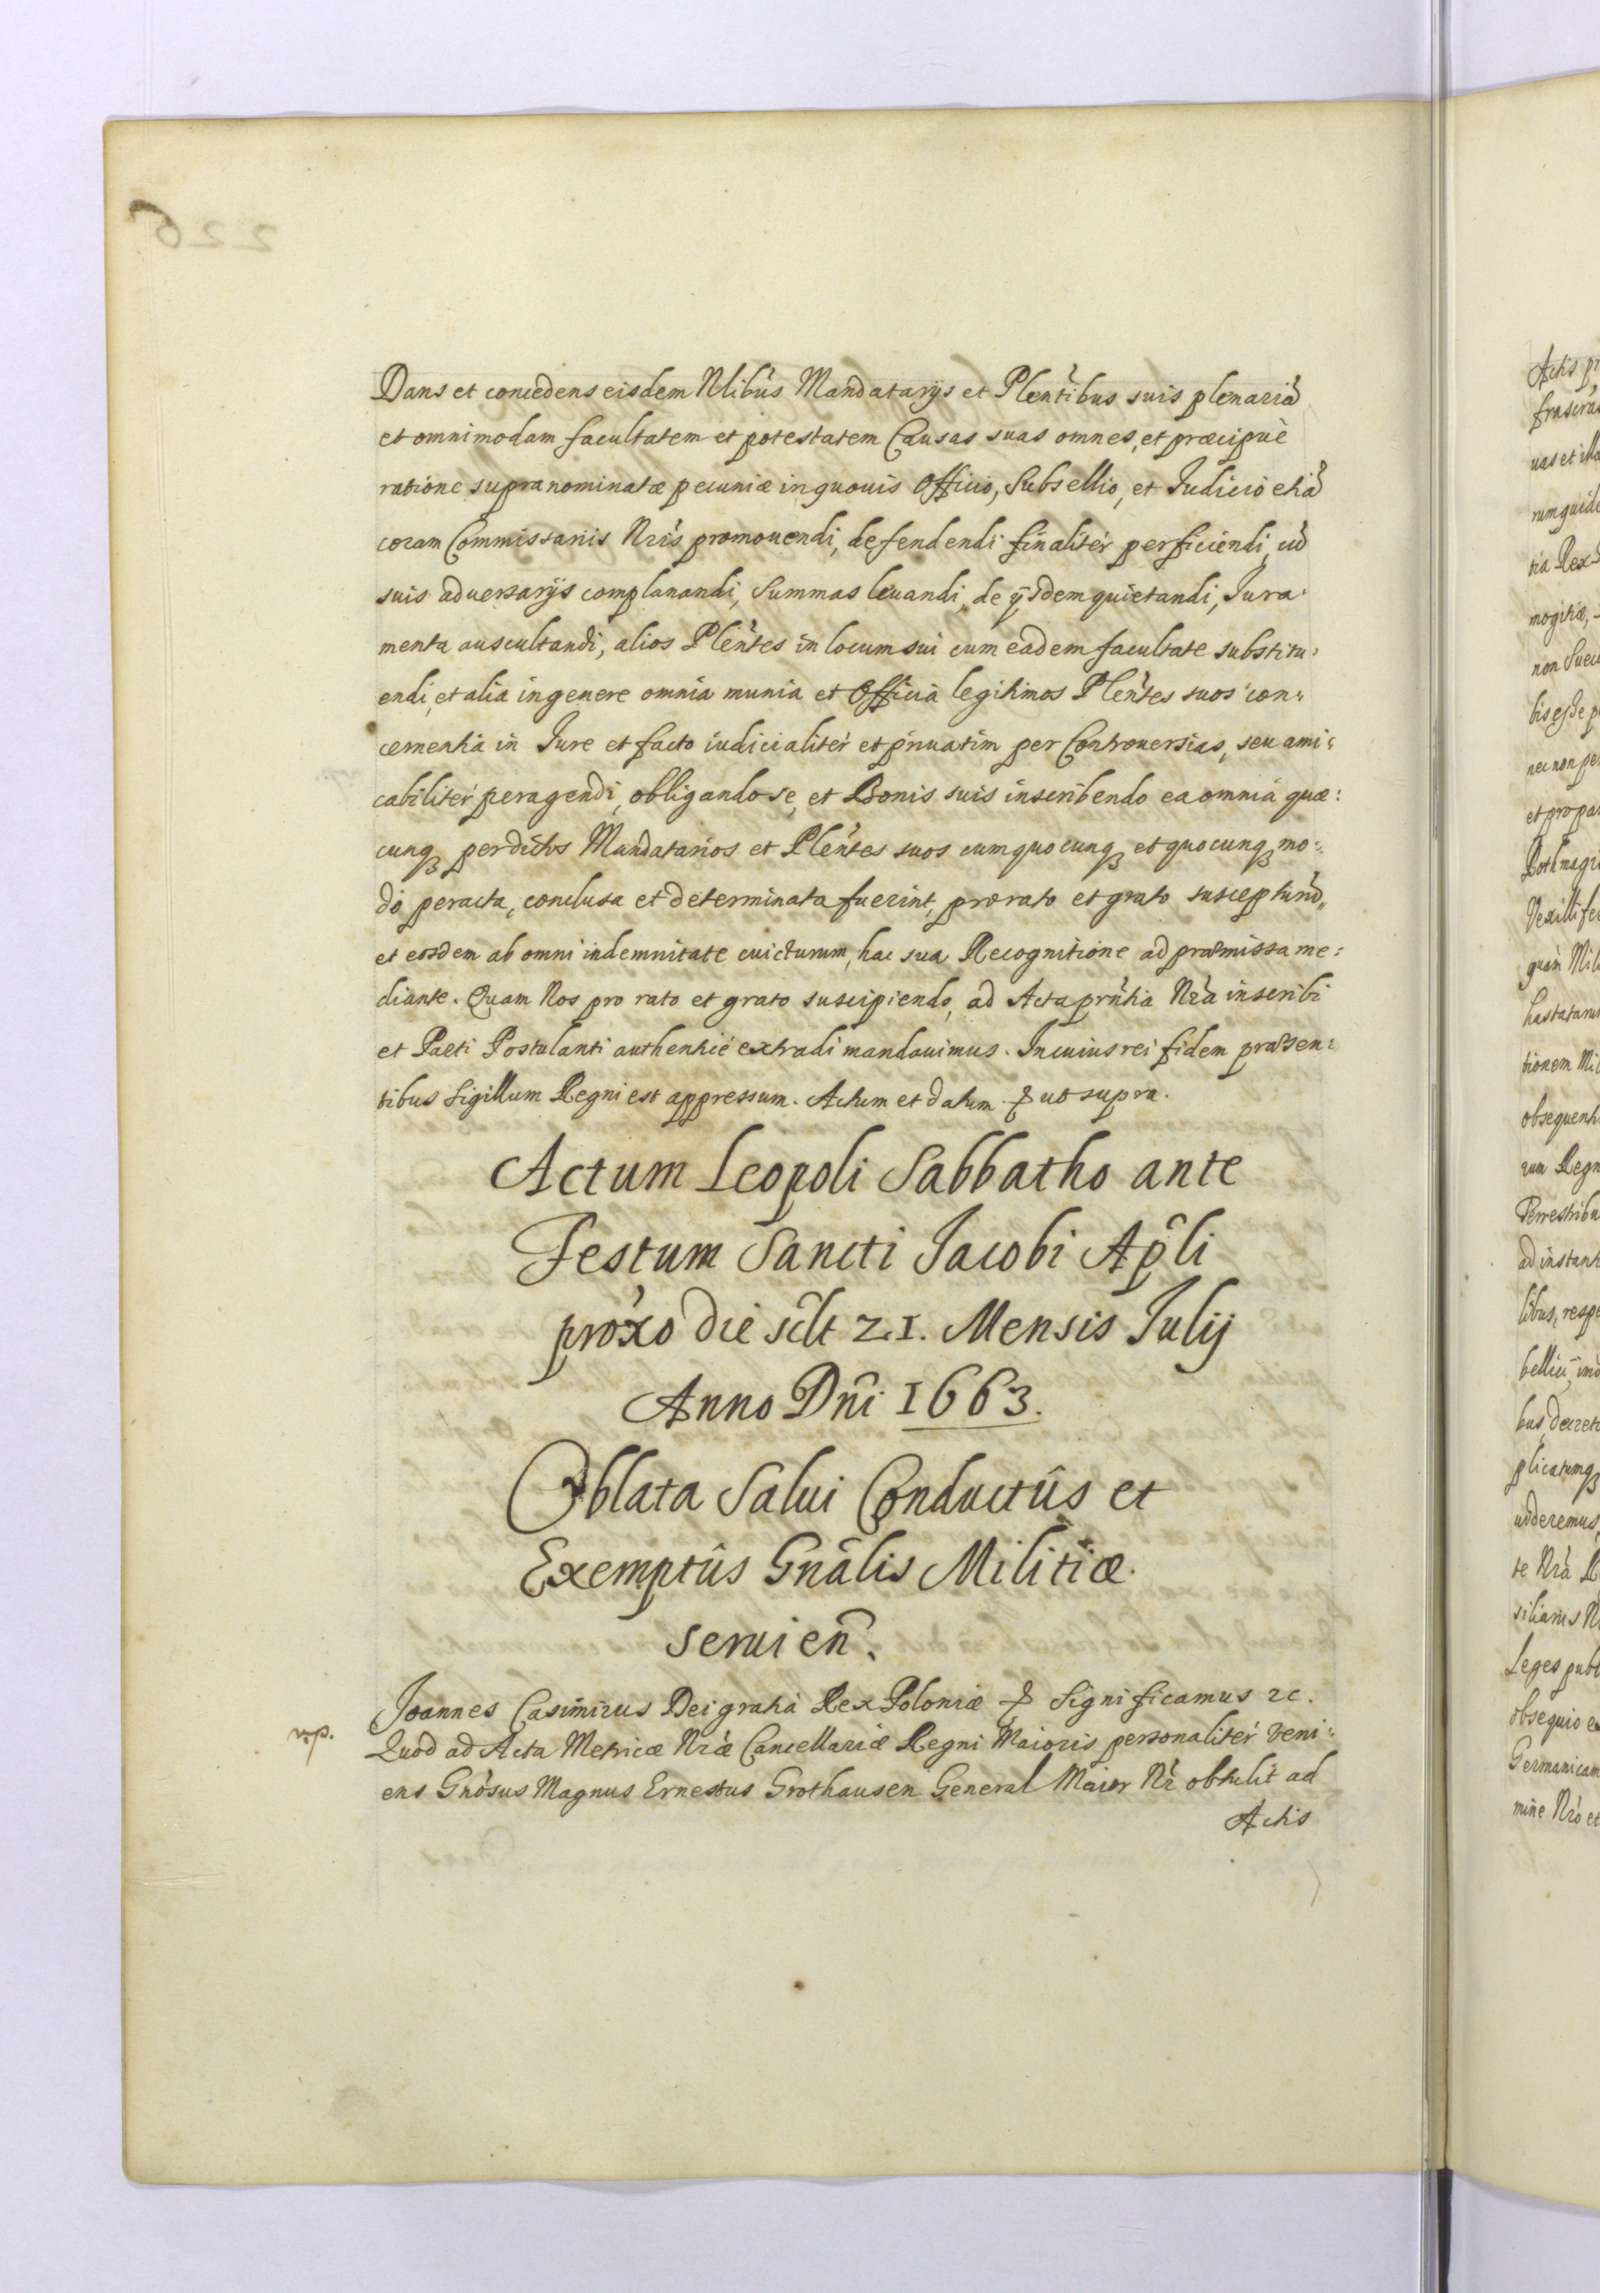 Dans et concedens eisdem Nlibus Mandatarijs et Plentibus suis plenariã
et omnimodam facultatem et potestatem Causas suas omnes, et præcipuè
ratione supranominatæ pecuniæ in quouis Officio, Subsellio, et Iudicio etiã
coram Commissariis Nris promouendi, defendendi finaliter perficiendi, cũ
suis aduersarijs complanandi, Summas leuandi, de ijsdem quietandi, Iura-
menta auscultandi, alios Plentes in locum sui cum eadem facultate substitu-
endi, et alia in genere omnia munia et Officia legitimos Plentes suos con-
cernentia in Iure et facto iudicialiter et priuatim per Controuersias, seu ami-
cabiliter peragendi, obligando se, et Bonis suis inscribendo ea omnia quæ-
cunq3 per dictos Mandatarios et Plentes suos cum quocunq3 et quocunq3 mo-
do peracta, conclusa et determinata fuerint, pro rato et grato suscepturũ,
et eosdem ab omni indemnitate euicturum, hac sua Recognitione ad præmissa me-
diante. Quam Nos pro rato et grato suscipiendo, ad Acta prntia Nra inscribi
et Parti Postulanti authenticè extradi mandauimus. In cuius rei fidem præsen-
tibus Sigillum Regni est appressum. Actum et datum & ut supra.
Actum Leopoli Sabbatho ante
Festum Sancti Jacobi Apli
proxo die sclt 21. Mensis Julij
Anno Dni 1663.
Oblata Salui Conductûs et
Exemptûs Gnãlis Militiæ
seruien.
Joannes Casimirus Dei gratia Rex Poloniæ & Significamus &c.
Quod ad Acta Metricæ Nræ Cancellariæ Regni Maioris personaliter veni-
ens Gnosus Magnus Ernestus Grothausen General Maier Nr obtulit ad
Actis
226